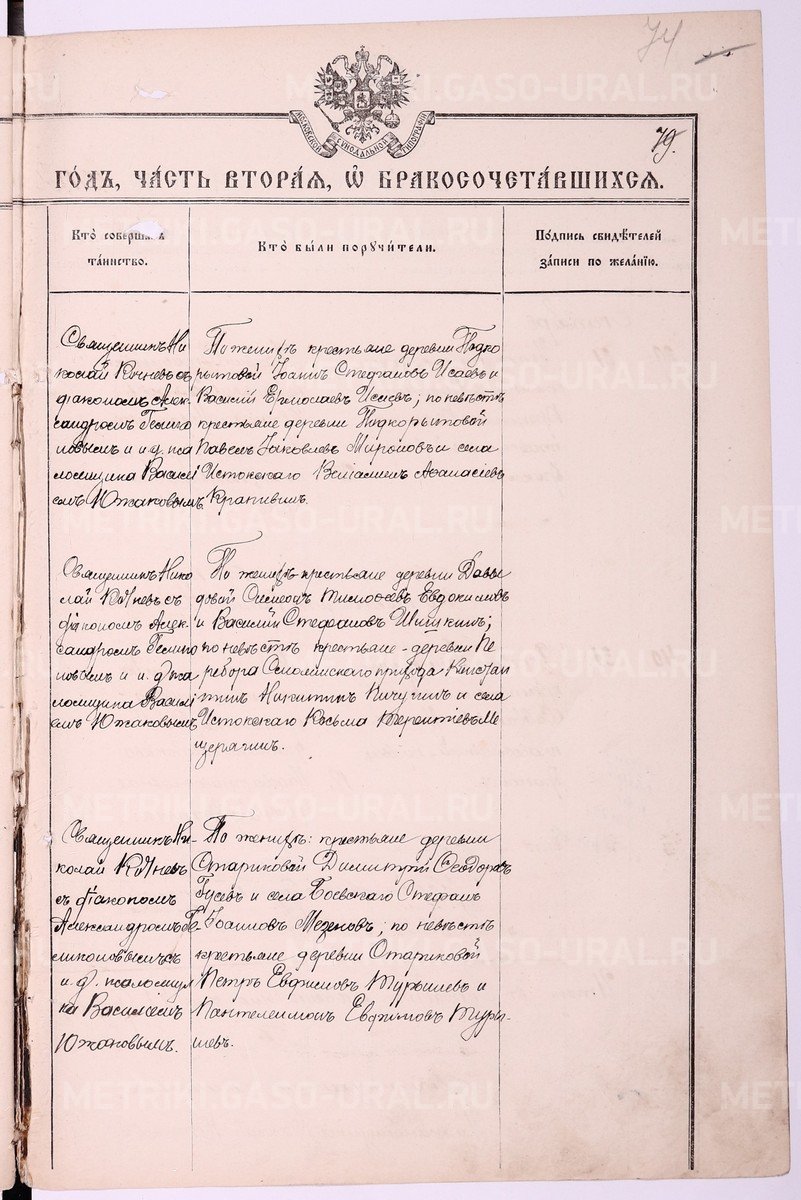 74
МОСКОВСКОЙ СѴНОДАЛЬНОЙ ТИПОГРАФІИ
79.
ГО́ДЪ, ЧА́СТЬ ВТОРА́Я, Ѡ҆ БРАКОСОЧЕТА́ВШИХСЯ.
Кто̀ соверша́лъ
та́инство.
Кто̀ бы́ли поручи́тели.
По́дпись свидѣ́телей
за́писи по жела́нїю.
Священникъ Ни
колай Кочневъ съ
діакономъ Алек
сандромъ
и и. д. пса
ломщика Василі
емъ Южаковымъ
По женихѣ крестьяне деревни Подко
рытовой Іоаннъ Стефановъ Исаевъ и
Василій Ермолаевъ Исаевъ; по невѣстѣ
крестьяне деревни Подкорытовой
Павелъ Іаковлевъ Мироновъ и села
Истокскаго Веніаминъ Аѳанасіевъ
Крапивинъ.
Священникъ Нико
лай Кочневъ съ
діакономъ Алек
сандромъ
и и. д. пса
ломщика Василі
емъ Южаковымъ
По женихѣ крестьяне деревни Давы
довой Симеонъ Тимоѳеевъ Евдокимовъ
и Василій Стефановъ Шишкинъ;
по невѣстѣ крестьяне - деревни Пе
ребора Смолинскаго прихода Констан
тинъ Никитинъ Пичугинъ и села
Истокскаго Косьма Терентіевъ Ме
щерагинъ.
Священникъ Ни-
колай Кочневъ
съ діакономъ
Александромъ
съ
и. д. псаломщи
ка Василіемъ
Южаковымъ.
По женихѣ: крестьяне деревни
Стариковой Димитрій Ѳеодоровъ
Гусевъ и села Боевскаго Стефанъ
Іоанновъ Мезеновъ; по невѣстѣ
крестьяне деревни Стариковой
Петръ Евфимовъ Турышевъ и
Пантелеимонъ Евфимовъ Туры-
шевъ.
METRIKI.GASO-URAL.RU